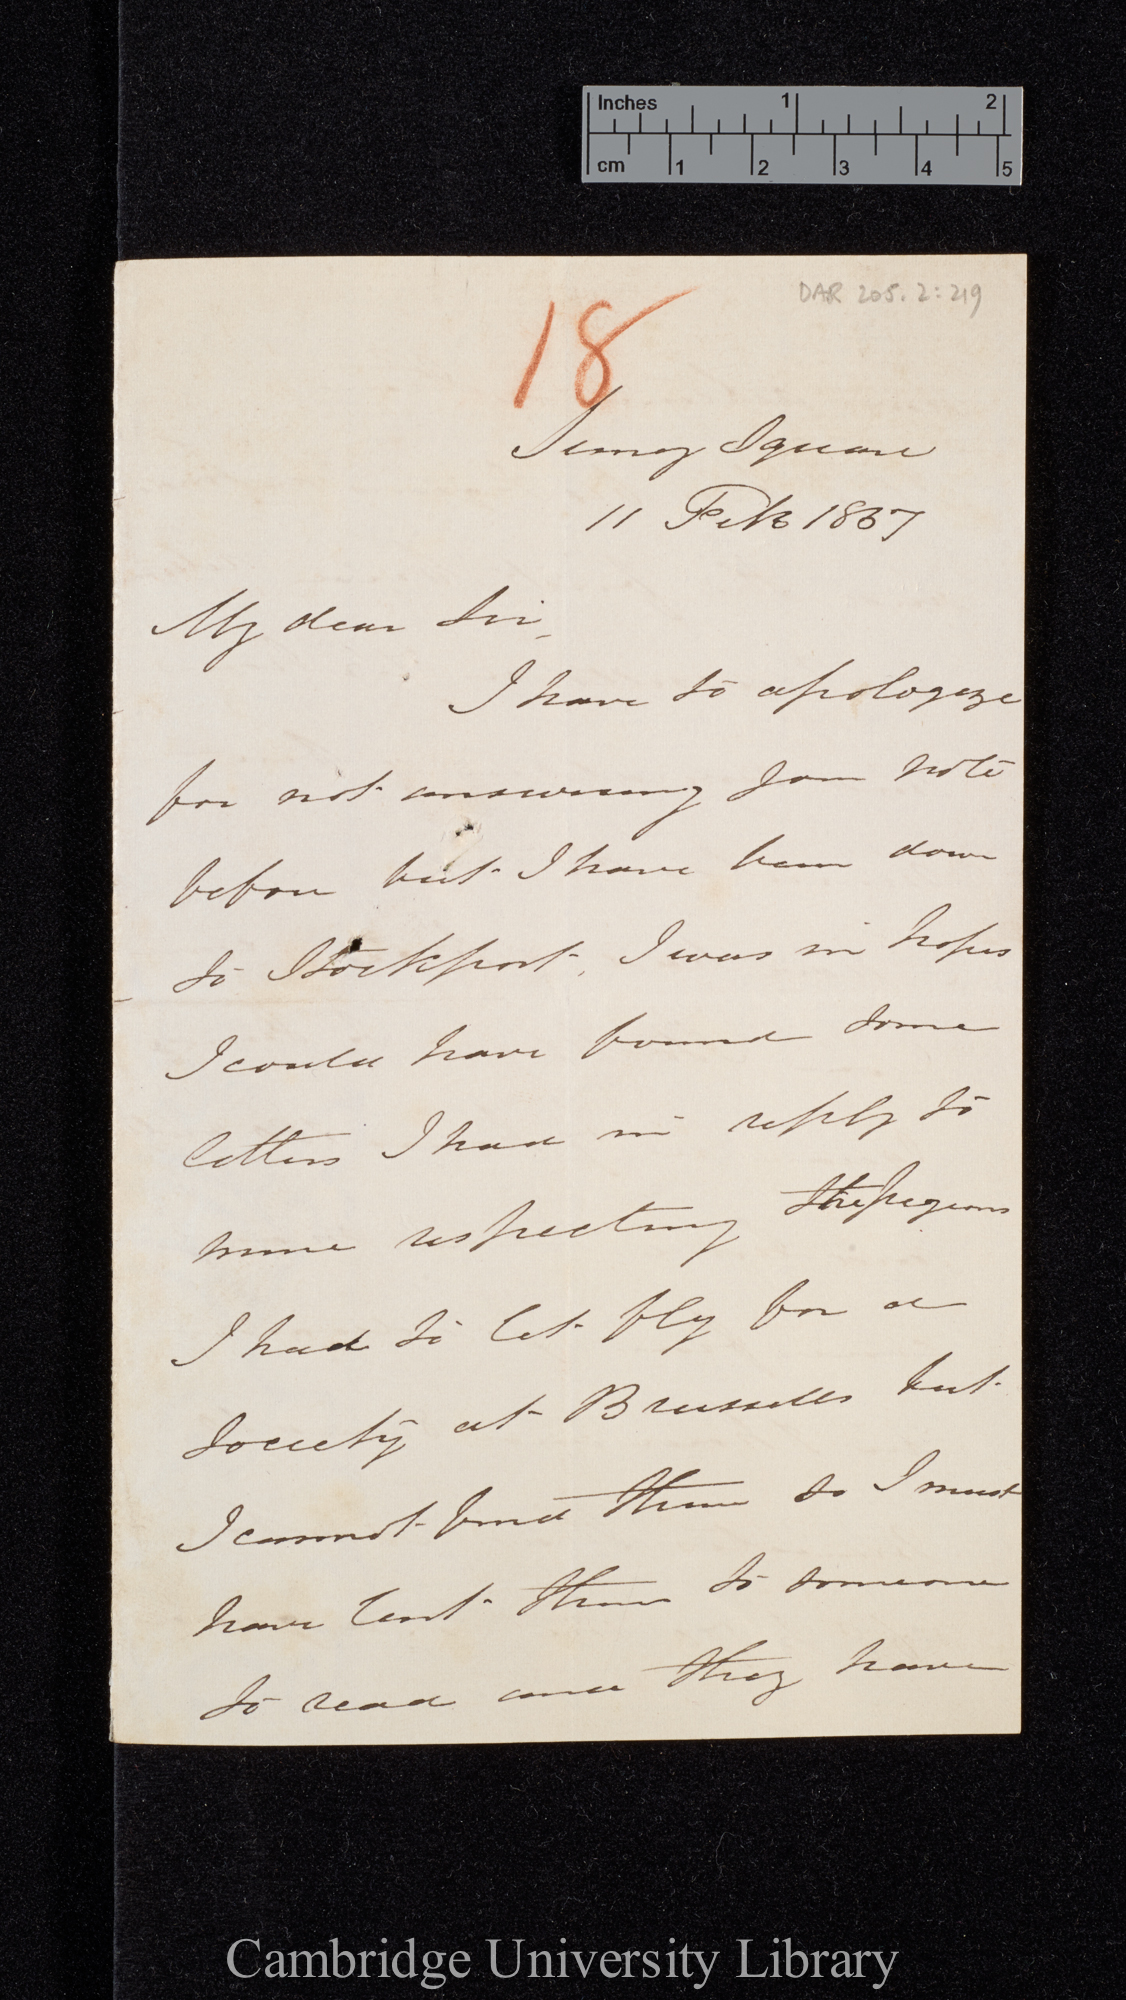 Inches 1 2
cm 1 2 3 4 5
DAR 205.2:219
18
Square
11 Feb 1867
My dear Sir,
I have to apologize
for not answering your note
before but I have been down
to Stockport, I was in hopes
I could have found some
letters I had in reply to
mine respecting the pigeons
I had to let fly for a
Society at Brussells but
I cannot find them so I must
have lent them to someone
to read and they have
Cambridge University Library